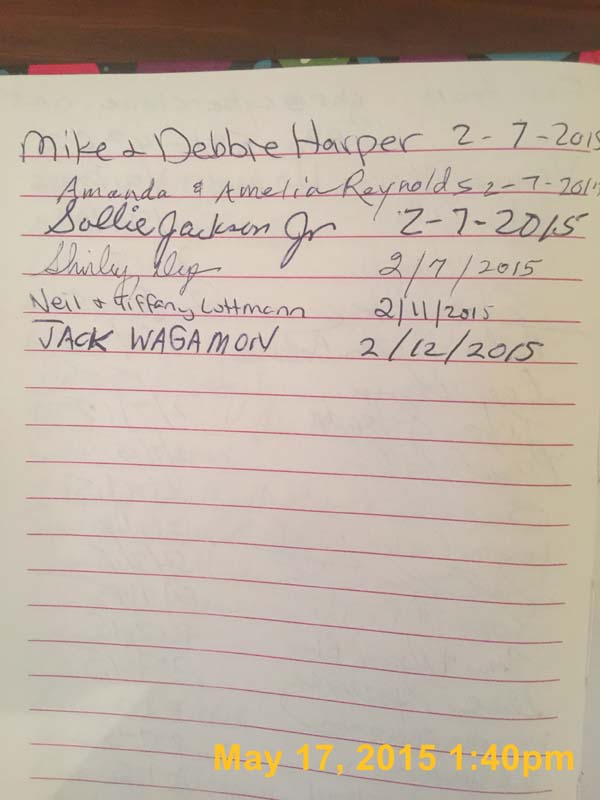 Mike & Debbie Harper 2-7-2015
Amanda & Amelia Reynolds 2-7-2015
Sollie Jackson Jr 2-7-2015
Shirley 2/7/2015
Neil & Tiffany Luttmann 2/11/2015
JACK WAGAMON 2/12/2015
May 17, 2015 1:40pm